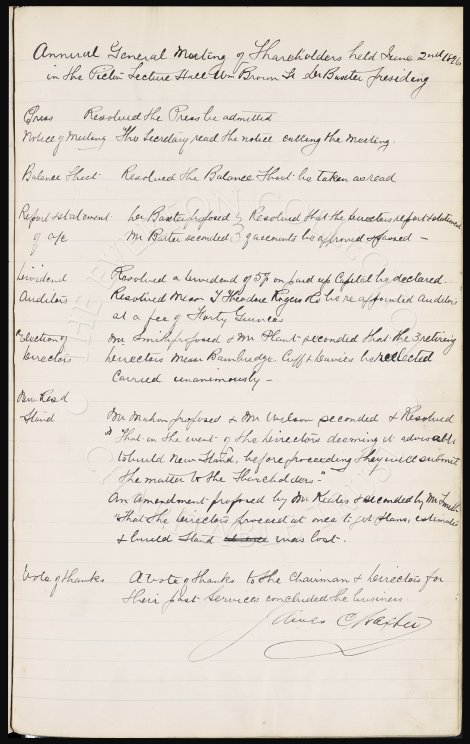 Annual General Meeting of Shareholders held June 2nd 1896
in the Picton Lecture Hall Wm Brown St Dr Baxter presiding
Press Resolved the Press be admitted
Notice of Meeting The Secretary read the notice calling the Meeting.
Balance Sheet Resolved the Balance Sheet be taken as read
Report & statement Dr Baxter proposed & Resolved that the Directors report & statement
of a/c Mr seconded of accounts be approved & passed –
Dividend Resolved a Dividend of 5% on paid up Capital be declared.
Auditors Resolved Messrs T Theodore Rogers & Co be re appointed auditors
at a fee of Forty Guineas
Election of Mr Smith proposed & Mr Plant seconded that the 3 retiring
Directors Directors Messrs Bainbridge. Cuff & Davies be reelected
Carried unanimously –
New
Stand Mr Mahon proposed & Mr Wilson seconded & Resolved
"That in the event of the Directors deeming it advisable
to build New Stand, before proceeding they will submit
the matter to the Shareholders."
An Amendment proposed by Mr & seconded by Mr Smith
"That the Directors proceed at once to get plans, estimates
& build Stand was lost.
Vote of thanks A vote of thanks to the Chairman & Directors for
their past services concluded the business
James C Baxter
THE EVERTON COLLECTION